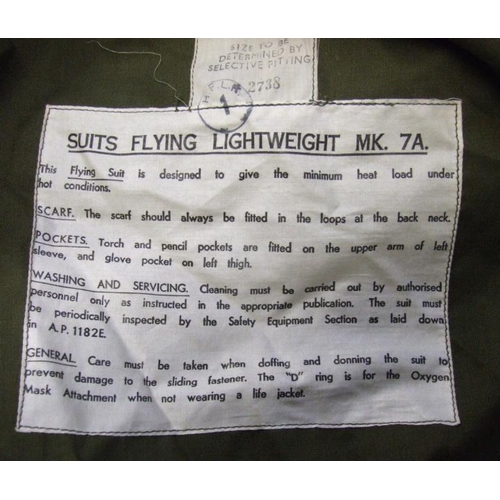 SIZE TO BE
DETERMINED BY
SELECTIVE FITTING
2738
1
SUITS FLYING LIGHTWEIGHT MK. 7A.
This Flying Suit is designed to give the minimum heat load under
hot conditions.
SCARF. The scarf should always be fitted in the loops at the back neck.
POCKETS. Torch and pencil pockets are fitted on the upper arm of left
sleeve, and glove pocket on left thigh.
WASHING AND SERVICING. Cleaning must be carried out by authorised
personnel only as instructed in the appropriate publication. The suit must
be periodically inspected by the Safety Equipment Section as laid down
in A.P. 1182E.
GENERAL. Care must be taken when doffing and donning the suit to
prevent damage to the sliding fastener. The "D" ring is for the Oxygen
Mask Attachment when not wearing a life jacket.